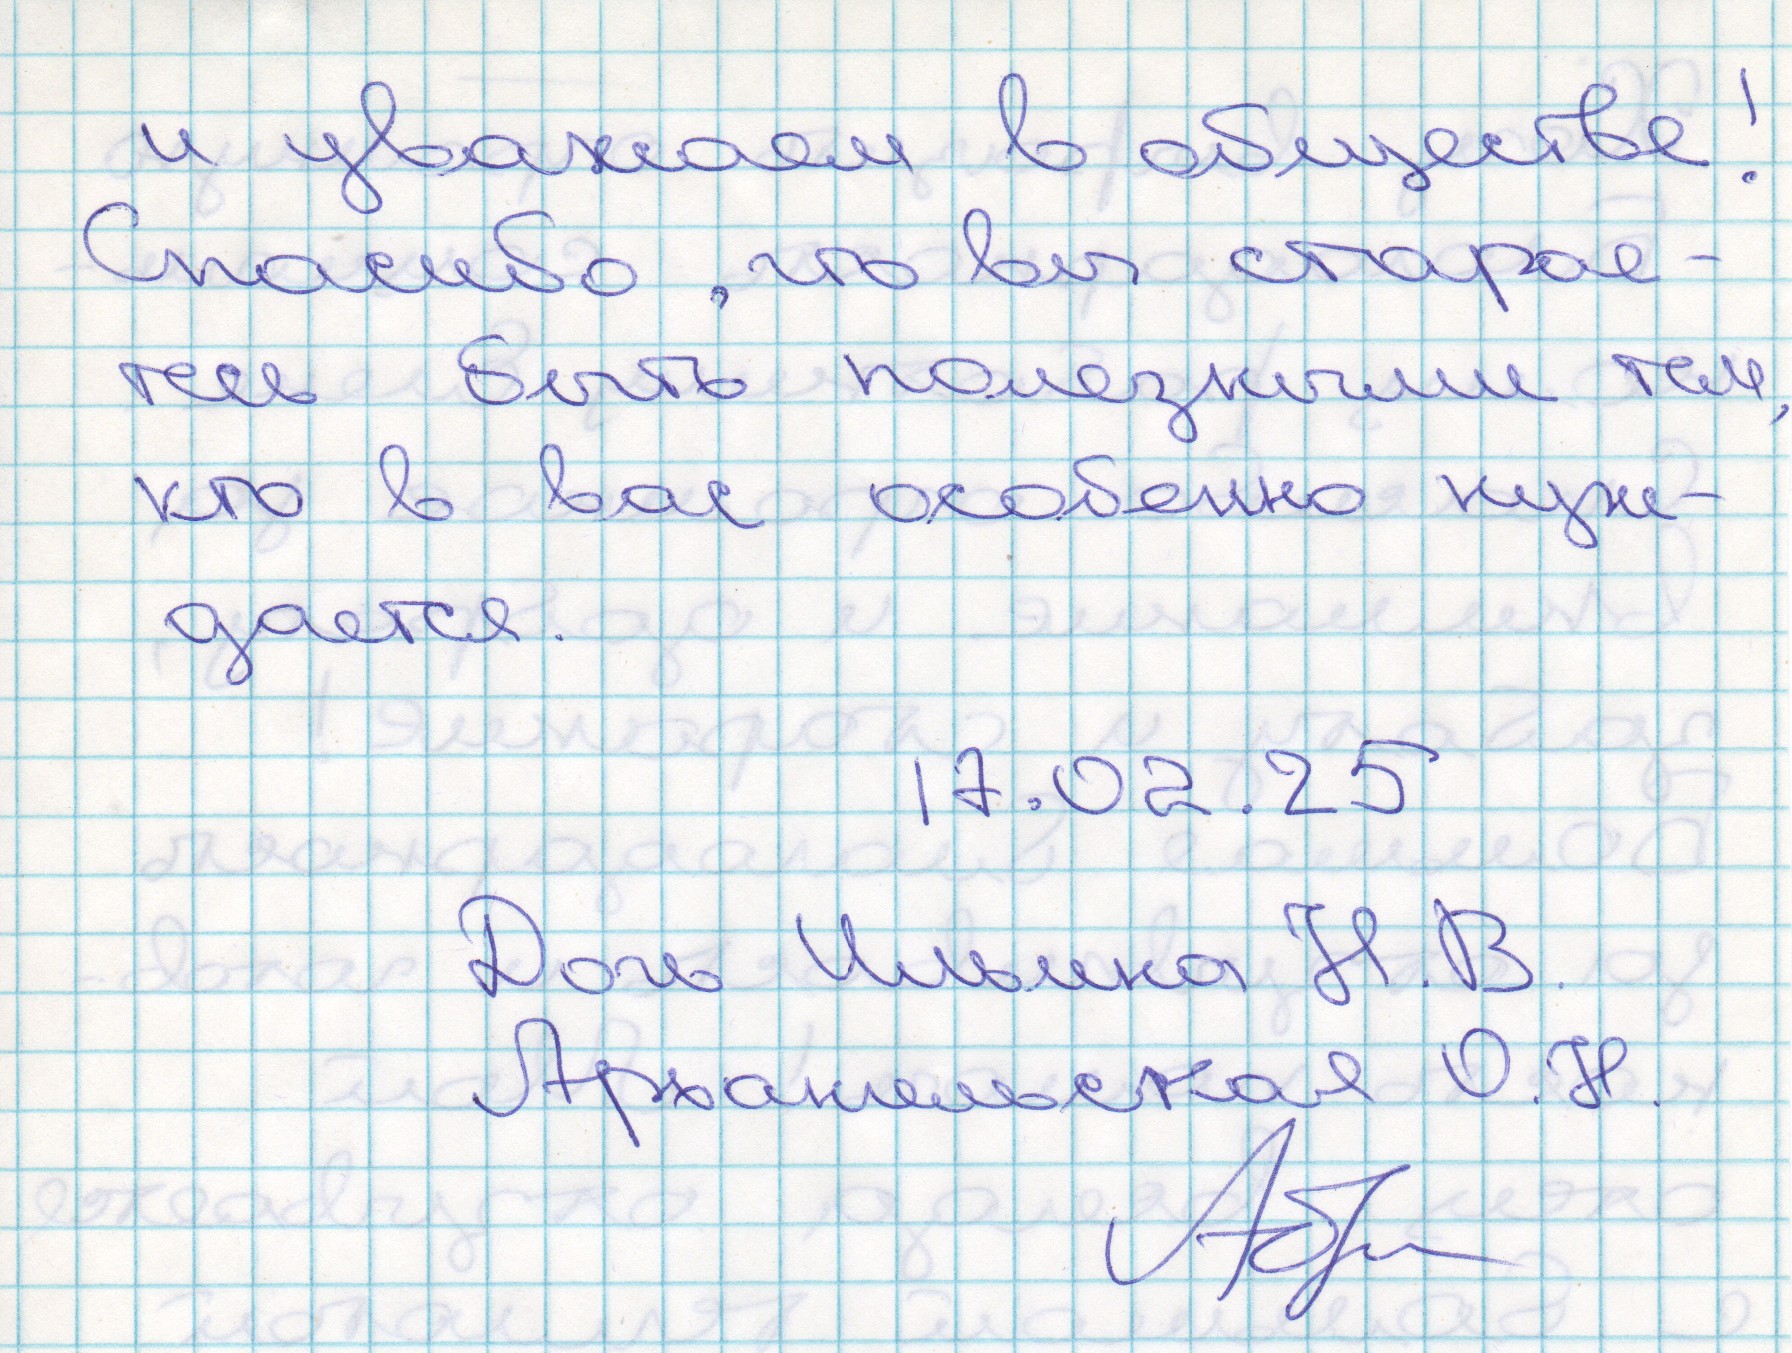 и уважаем в обществе!
Спасибо, что вы старае-
тесь быть полезными тем,
кто в вас особенно нуж-
дается.
17.02.25
Дочь Ильина Н.В.
Архангельская О.Н.